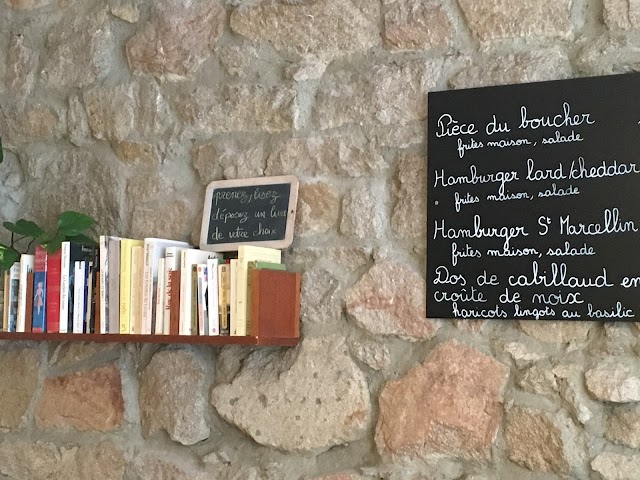 prenez, lisez
déposez un livre
de votre choix
Pièce du boucher
frites maison, salade
Hamburger lard/cheddar
frites maison, salade
Hamburger St Marcellin
frites maison, salade
Dos de cabillaud en
croûte de noix
haricots lingots au basilic